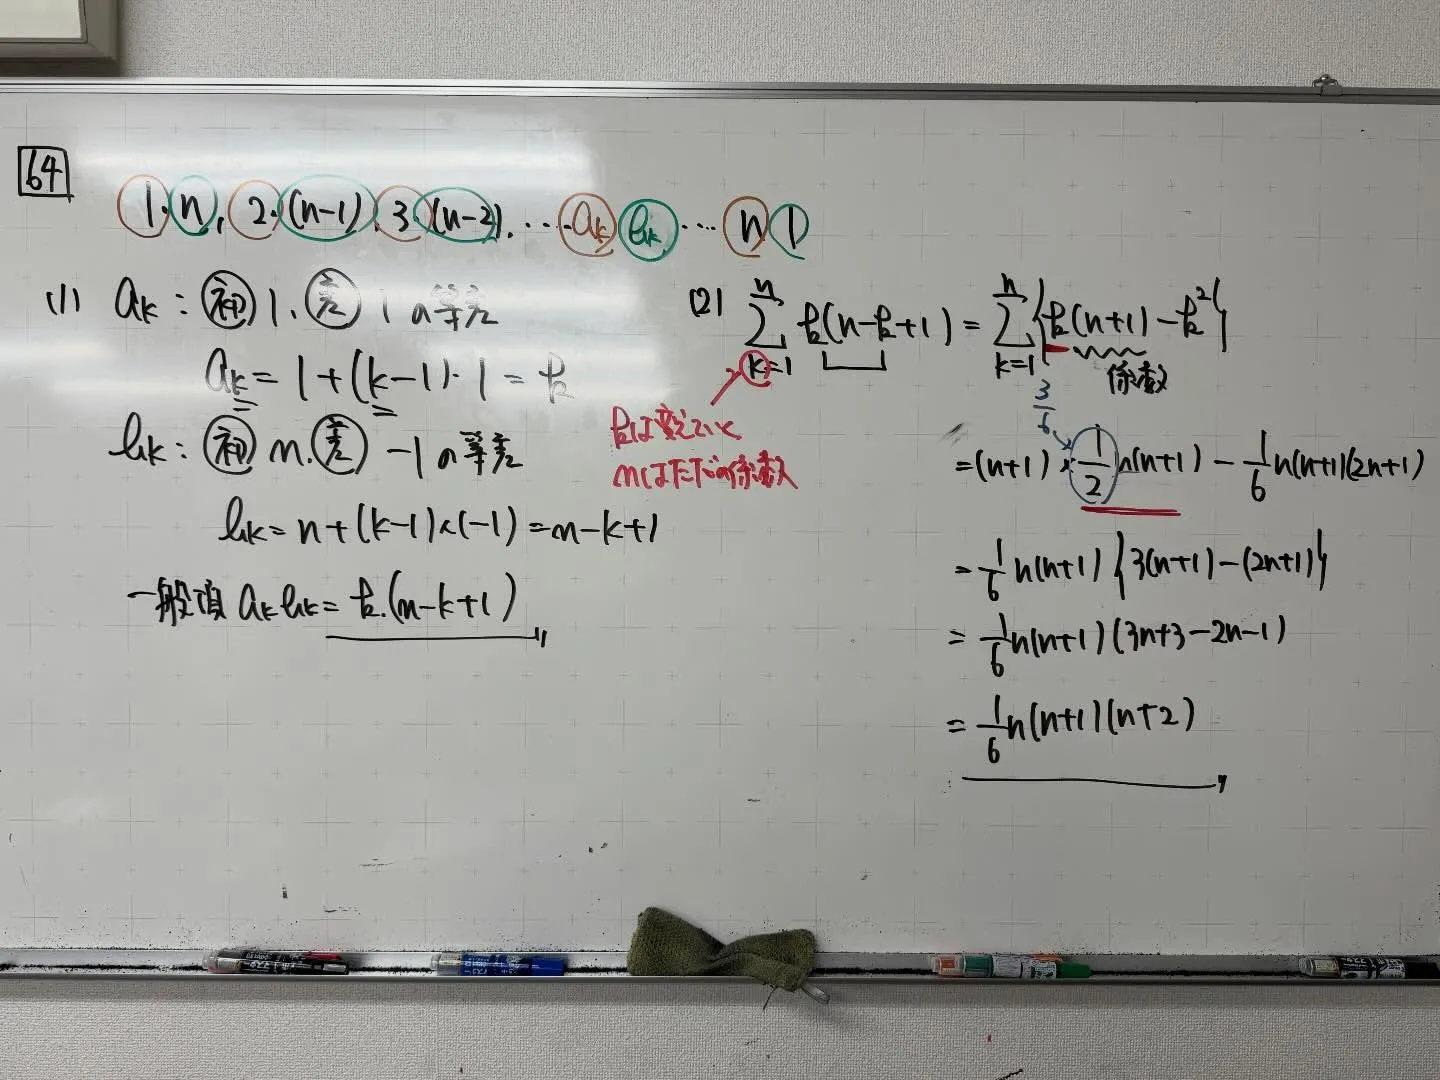 64
1・n, 2・(n-1), 3・(n-2), … ak bk … n 1
(1) ak : 初 1. 差 1 の等差
ak = 1+(k-1)・1 = k
bk : 初 n. 差 -1 の等差
bk = n+(k-1)×(-1) = n-k+1
一般項 ak bk = k・(n-k+1)
(2) n∑k=1 k(n-k+1) = n∑k=1 {k(n+1)-k²}
係数
kは変えてく
nはただの係数
3/6
= (n+1)×1/2 n(n+1) - 1/6 n(n+1)(2n+1)
= 1/6 n(n+1){3(n+1)-(2n+1)}
= 1/6 n(n+1)(3n+3-2n-1)
= 1/6 n(n+1)(n+2)